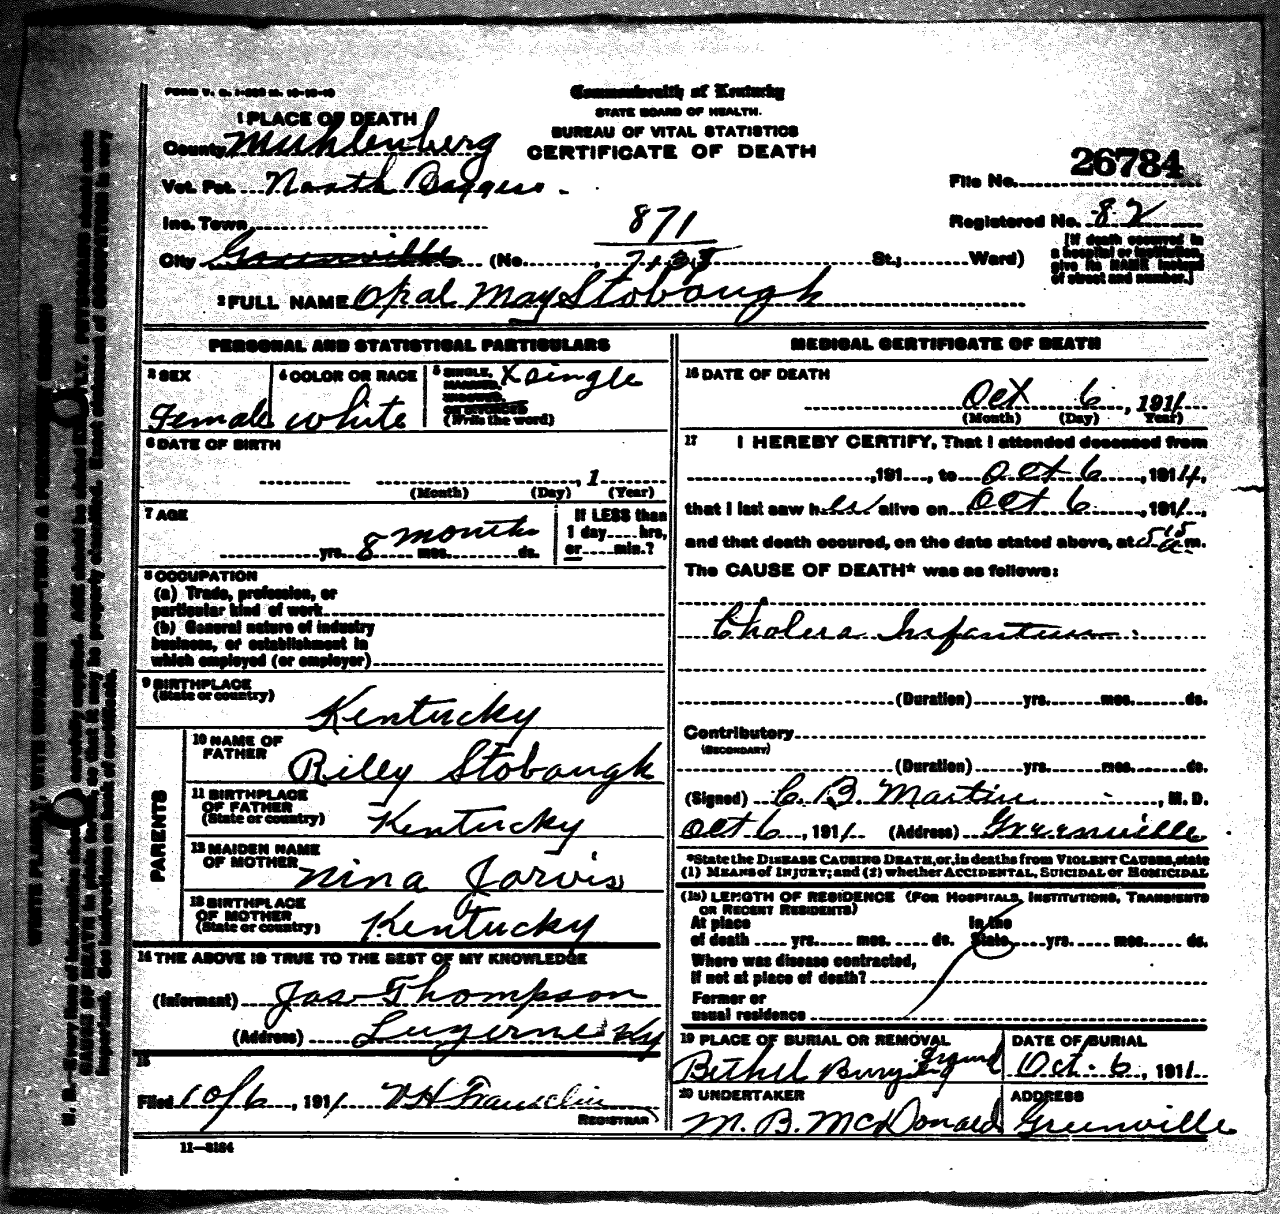 FORM V. S. 1-
Commonwealth of Kentucky
STATE BOARD OF HEALTH.
BUREAU OF VITAL STATISTICS
CERTIFICATE OF DEATH
1 PLACE OF DEATH
County Muhlenberg
Vot. Pct. North
Inc. Town
871
City Greenville (No. St.; Ward)
File No. 26784
Registered No. 82
[If death occurred in
a hospital or institution,
give its NAME instead
of street and number.]
2 FULL NAME Opal May Stobaugh
PERSONAL AND STATISTICAL PARTICULARS
3 SEX
Female
4 COLOR OR RACE
white
5 SINGLE,
MARRIED,
WIDOWED,
OR DIVORCED
(Write the word)
X single
6 DATE OF BIRTH
, 1
(Month) (Day) (Year)
7 AGE
yrs. 8 months mos. ds.
If LESS than
1 day hrs,
or min.?
8 OCCUPATION
(a) Trade, profession, or
particular kind of work
(b) General nature of industry
business, or establishment in
which employed (or employer)
9 BIRTHPLACE
(State or country)
Kentucky
PARENTS
10 NAME OF
FATHER
Riley Stobaugh
11 BIRTHPLACE
OF FATHER
(State or country)
Kentucky
12 MAIDEN NAME
OF MOTHER
Nina Jarvis
13 BIRTHPLACE
OF MOTHER
(State or country)
Kentucky
14 THE ABOVE IS TRUE TO THE BEST OF MY KNOWLEDGE
(Informant) Jas Thompson
(Address) Luzerne Ky
15
Filed 10/6, 1911 Franklin
REGISTRAR
11-3184
MEDICAL CERTIFICATE OF DEATH
16 DATE OF DEATH
Oct 6, 1911
(Month) (Day) Year)
17 I HEREBY CERTIFY, That I attended deceased from
,191 , to Oct 6, 1911,
that I last saw her alive on Oct 6, 1911,
and that death occured, on the date stated above, at 5 15 a m.
The CAUSE OF DEATH* was as follows:
Cholera Infantum
(Duration) yrs. mos. ds.
Contributory
(SECONDARY)
(Duration) yrs. mos. ds.
(Signed) C. B. Martin, M. D.
Oct 6, 1911 (Address) Greenville
*State the DISEASE CAUSING DEATH, or, in deaths from VIOLENT CAUSES, state
(1) MEANS of INJURY; and (2) whether ACCIDENTAL, SUICIDAL or HOMICIDAL
(18) LENGTH OF RESIDENCE (FOR HOSPITALS, INSTITUTIONS, TRANSIENTS
OR RECENT RESIDENTS)
At place In the
of death yrs. mos. ds. State yrs. mos. ds.
Where was disease contracted,
if not at place of death?
Former or
usual residence
19 PLACE OF BURIAL OR REMOVAL
Bethel Burying ground
DATE OF BURIAL
Oct. 6, 1911
20 UNDERTAKER
M. B. McDonald
ADDRESS
Greenville